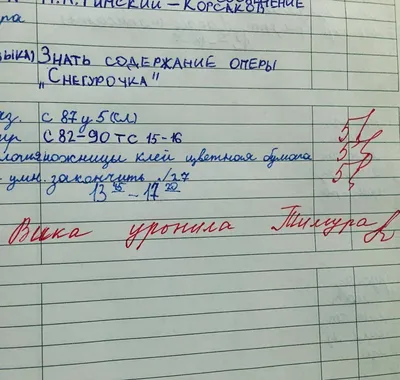 Н.А. Римский-Корсаков
ра
зыка) Знать содержание оперы
„Снегурочка"
аз. с 87 у 5(сл) 5
ир с 82-90 тс 15-16 5
ология ножницы клей цветная бумага 5
умн. закончить №27 5
13 45 - 17 20
Вика уронила Тимура